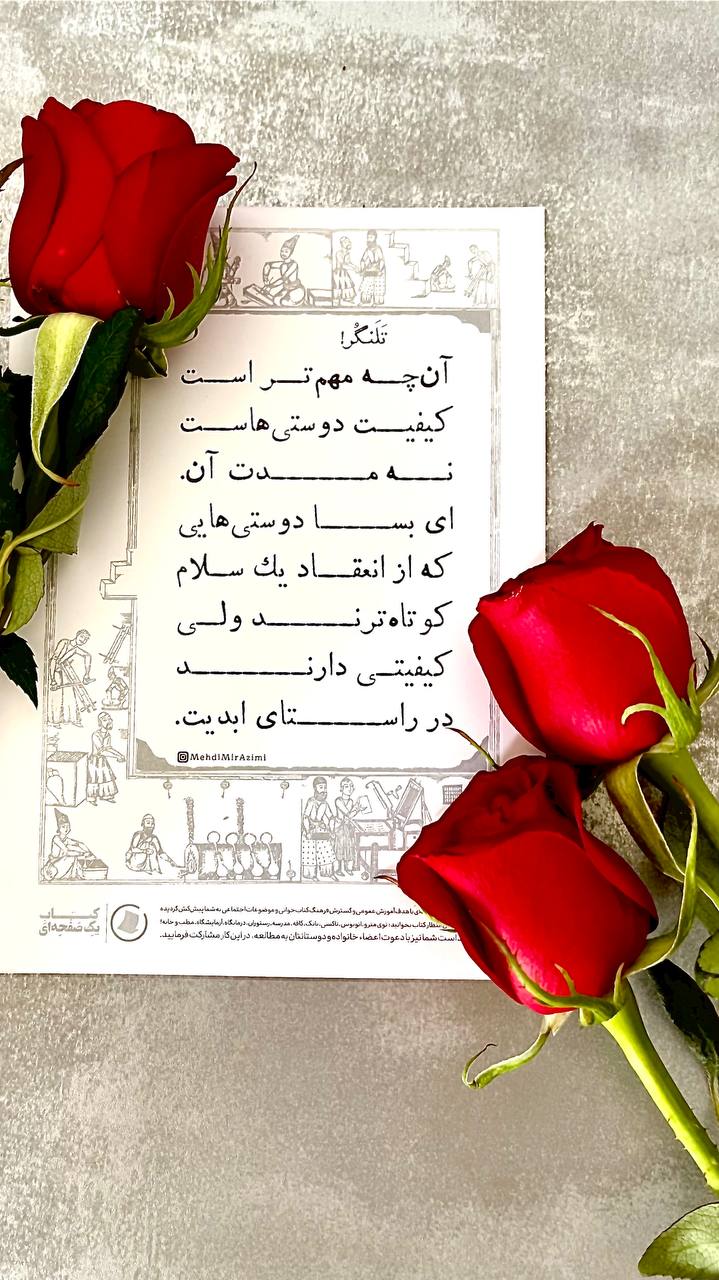 تَلَنگُر!
آن‌چه مهم‌تر است
کیفیت دوستی‌هاست
نه مدت آن.
ای بسا دوستی‌هایی
که از انعقاد یك سلام
کوتاه‌ترند ولی
کیفیتی دارند
در راستای ابدیت.
MehdiMirAzimi
با هدف آموزش عمومی و گسترش فرهنگ کتاب‌خوانی و موضوعات اجتماعی به شما پیش‌کش گردیده
انتظار کتاب بخوانید؛ توی مترو، اتوبوس، تاکسی، بانک، کافه، مدرسه، رستوران، درمانگاه، آزمایشگاه، مطب و خانه!
است شما نیز با دعوت اعضاء خانواده و دوستانتان به مطالعه، در این کار مشارکت فرمایید.
کتاب
یک صفحه‌ای